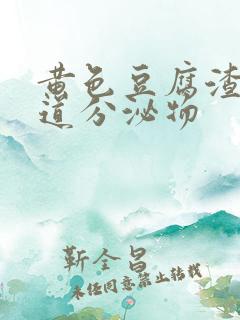 黄色豆腐渣
道分泌物
靳全昌
未经同意禁止转载